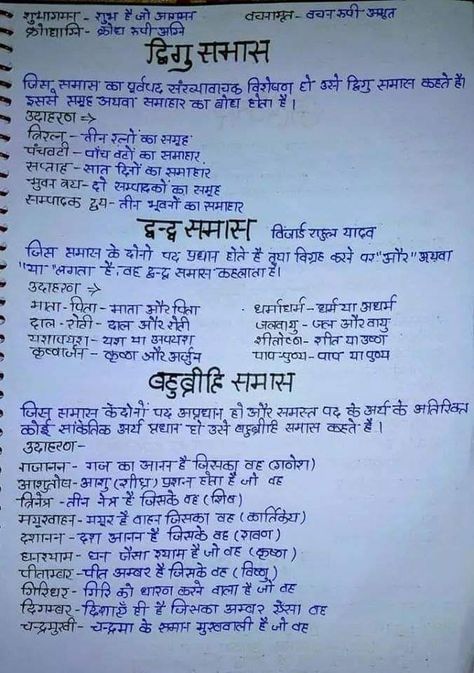 शुभागमन - शुभ है जो आगमन वचनामृत - वचन रूपी अमृत
क्रोधाग्नि - क्रोध रूपी अग्नि
द्विगु समास
जिस समास का पूर्वपद संख्यावाचक विशेषण हो उसे द्विगु समास कहते है।
इससे समूह अथवा समाहार का बोध होता है।
उदाहरण ⇒
त्रिरत्न - तीन रत्नों का समूह
पंचवटी - पाँच वटों का समाहार
सप्ताह - सात दिनों का समाहार
भुवन त्रय - दो सम्पादकों का समूह
सम्पादक द्वय - तीन भूवनों का समाहार
द्वन्द्व समास विजार्ड राहुल यादव
जिस समास के दोनों पद प्रधान होते है तथा विग्रह करने पर "और" अथवा
"या" लगता है, वह द्वन्द्व समास कहलाता है।
उदाहरण ⇒
माता-पिता - माता और पिता धर्माधर्म - धर्म या अधर्म
दाल-रोटी - दाल और रोटी जलवायु - जल और वायु
यशापयश - यश या अपयश शीतोष्ण - शीत या उष्ण
कृष्णार्जन - कृष्णा और अर्जुन पाप-पुण्य - पाप या पुण्य
बहुब्रीहि समास
जिस समास के दोनों पद अप्रधान हो और समस्त पद के अर्थ के अतिरिक्त
कोई सांकेतिक अर्थ प्रधान हो उसे बहुब्रीहि समास कहते है।
उदाहरण -
गजानन - गज का आनन है जिसका वह (गणेश)
आशुतोष - आशु (शीघ्र) प्रशन होता है जो वह
त्रिनेत्र - तीन नेत्र है जिसके वह (शिव)
मयूरवाहन - मयूर है वाहन जिसका वह (कार्तिकेय)
दशानन - दश आनन है जिसके वह (रावण)
घनश्याम - घन जैसा श्याम है जो वह (कृष्णा)
पीताम्बर - पीत अम्बर है जिसके वह (विष्णु)
गिरिधर - गिरि को धारण करने वाला है जो वह
दिगम्बर - दिशाएँ ही है जिसका अम्बर ऐसा वह
चन्द्रमुखी - चन्द्रमा के समान मुखवाली है जो वह